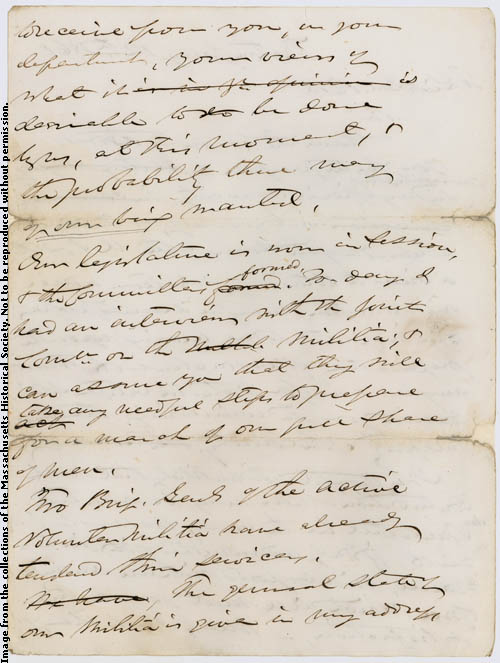 to receive from you, in your
department, your views of
what it is in yr opinion is
desirable to do be done
by us, at this moment, &
the probability there may
of our being wanted.
Our legislature is now in session,
& the Committees formed. To day I
had an interview with the joint
Comtee on the Militia, &
can assure you that they will
take any needful steps to prepare
for a march of our full share
of men.
Two Brig. Genls of the active
Volunteer Militia have already
tendered their services.
We have, The general state of
our Militia is given in my address
Image from the collections of the Massachusetts Historical Society. Not to be reproduced without permission.